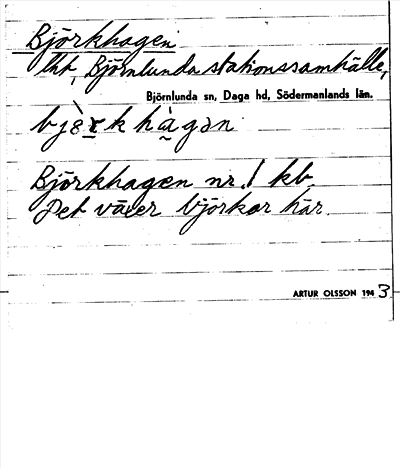 Björkhagen
lht, Björnlunda stationssamhälle,
Björnlunda sn, Daga hd, Södermanlands län.
bjè̀rk hàgən
Björkhagen nr 1 kb.
Det växer björkar här.
ARTUR OLSSON 1943